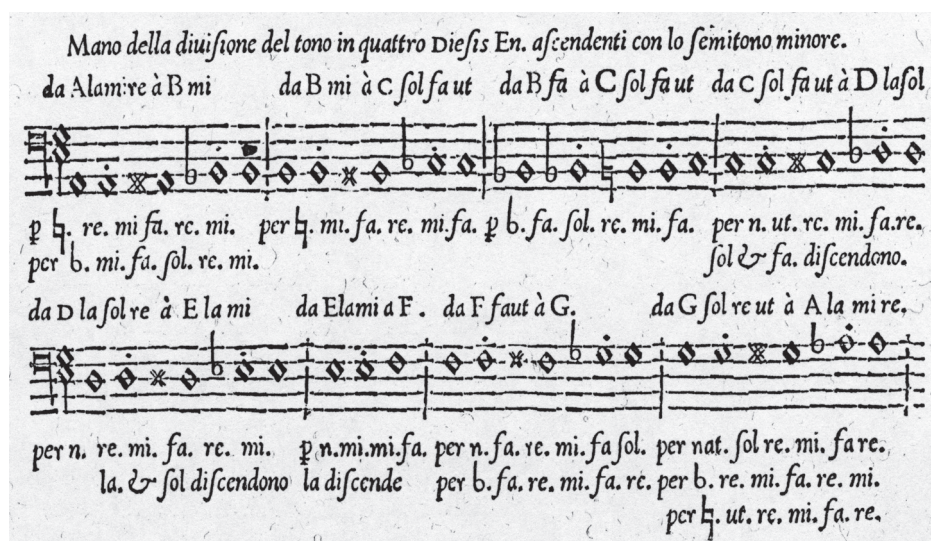 Mano della diuiſione del tono in quattro Dieſis En. aſcendenti con lo ſemitono minore.
da Alamire à B mi da B mi à C ſol fa ut da B fa à C ſol fa ut da C ſol fa ut à D laſol
ꝑ ♮. re. mi fa. re. mi. per ♮. mi. fa. re. mi. fa. ꝑ b. fa. ſol. re. mi. fa. per n. ut. re. mi. fa.re.
per b. mi. fa. ſol. re. mi. ſol & fa. diſcendono.
da D la ſol re à E la mi da Elami a F. da F faut à G. da G ſol re ut à A la mi re.
per n. re. mi. fa. re. mi. ꝑ n.mi.mi.fa. per n. fa. re. mi. fa ſol. per nat. ſol re. mi. fa re.
la. & ſol diſcendono la diſcende per b. fa. re. mi. fa. re. per b. re. mi. fa. re. mi.
per ♮. ut. re. mi. fa. re.